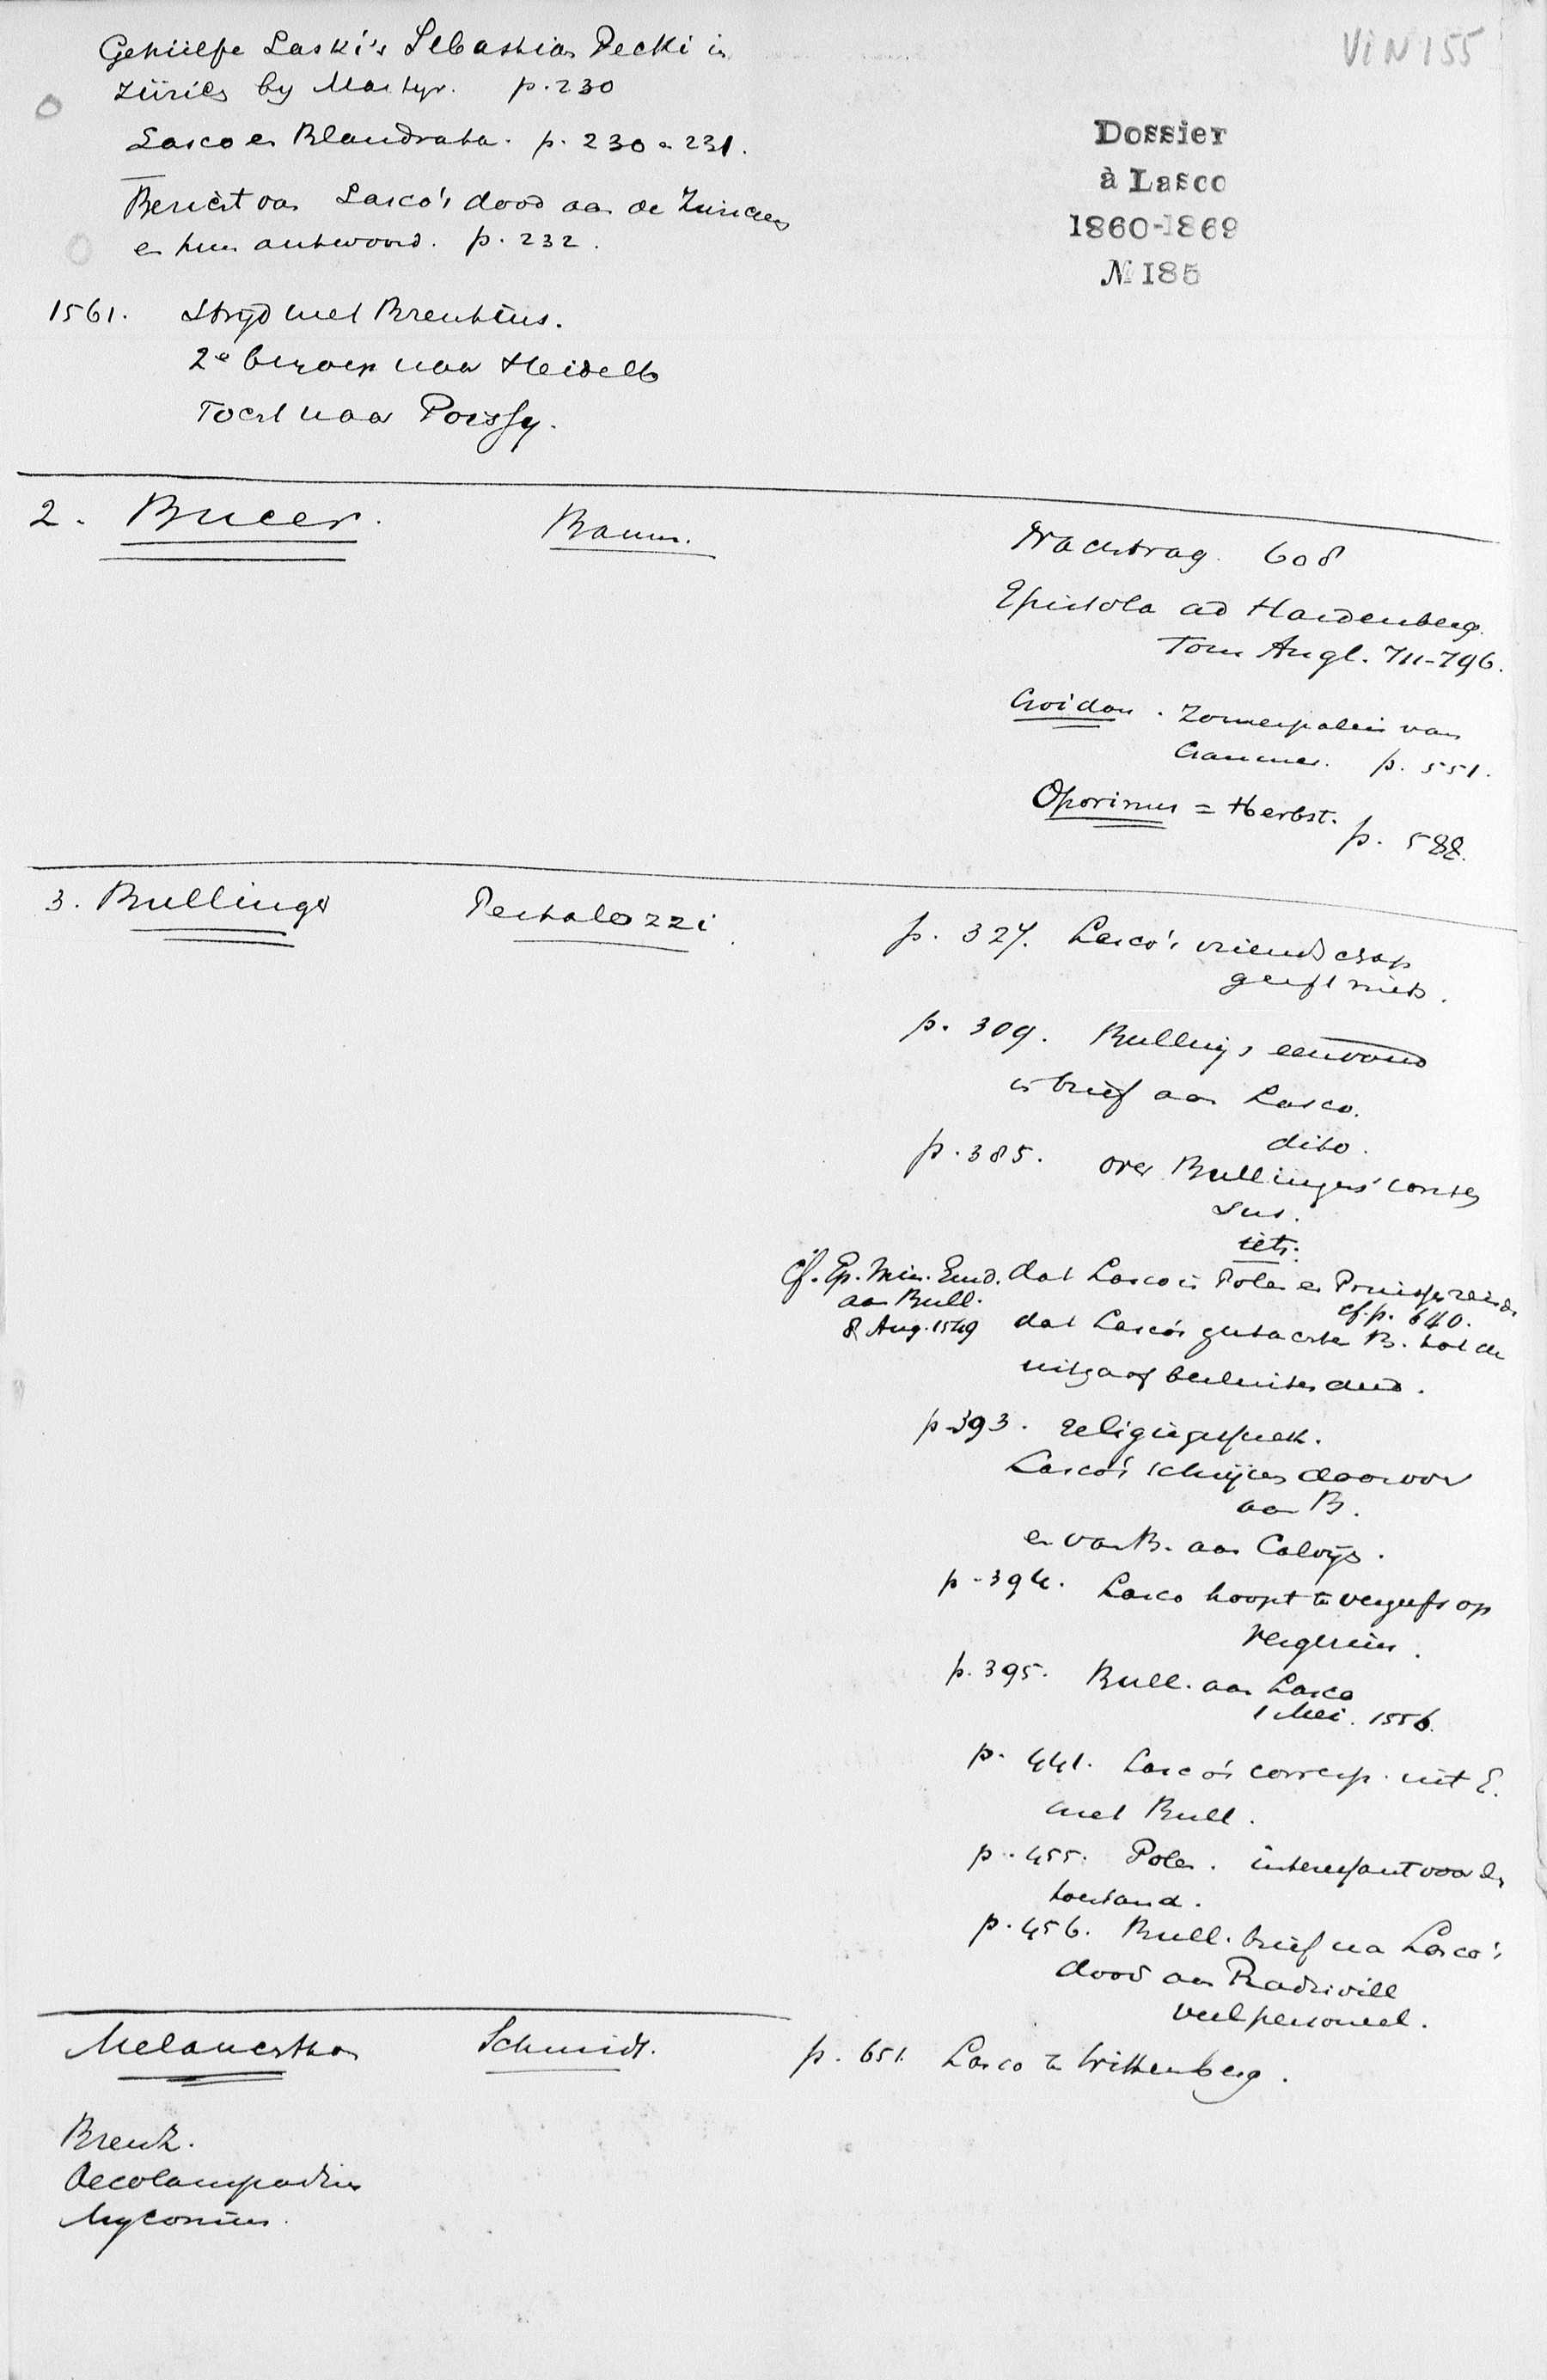 VIN 155
Dossier
à Lasco
1860-1869
№ 185
Gehülfe Laski's Sebastian Pecki in
Zürich by Martyr. p. 230
Lasco en Blandrata. p. 230 a 231.
Bericht van Lasco's dood aan de Zurichers
en hun antwoord. p. 232.
1561. Strijd met Brentius.
2e beroep naar Heidelb
Tocht naar Poissy.
2. Bucer. Baum.
Nachtrag. 608
Epistola ad Hardenberg.
Tom Angl. 711-796.
Croidon. Zomerpaleis van
Cranmer. p. 551.
Oporinus = Herbst. p. 588.
3. Bullinger Pestalozzi.
p. 327. Lasco's vriendschap
geeft niets.
p. 309. Bullingers eenvoud
in brief aan Lasco.
dito.
p. 385. over Bullingers' consen
sus.
iets.
Cf. Ep. Min. Emd. dat Lasco in Polen en Pruissen reisde
aan Bull. cf. p. 640.
8 Aug. 1549 dat Lasco's gedachte B. tot de
uitgaaf besluiten deed.
p. 393. religiegesprek.
Lasco's schrijven daarvoor
aan B.
en van B. aan Calvijn.
p. 394. Lasco hoopt te vergeefs op
Vergerius.
p. 395. Bull. aan Lasco
1 Mei. 1556.
p. 441. Lasco's corresp. uit E.
met Bull.
p. 455. Polen. interessant voor den
toestand.
p. 456. Bull. brief na Lasco's
dood aan Radzivill
veel personeel.
Melanchthon Schmidt. p. 651. Lasco te Wittenberg.
Brenz.
Oecolampadius
Myconius.